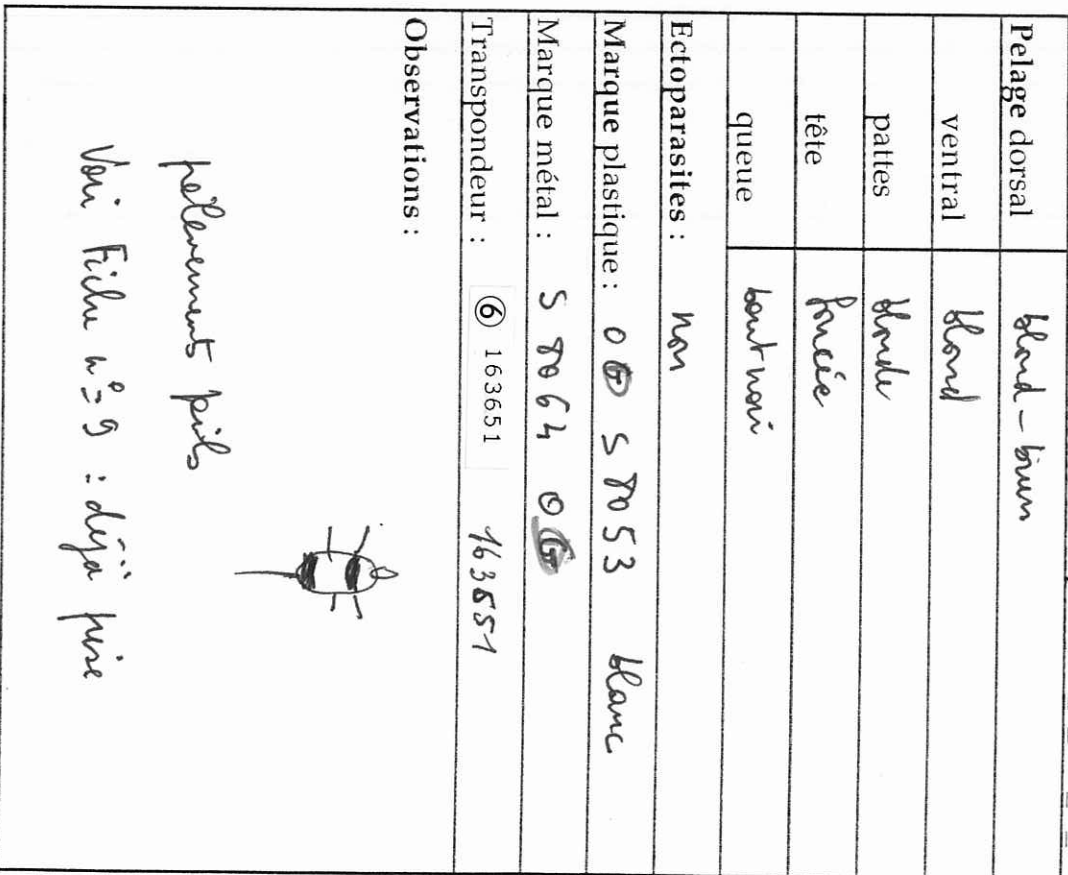 Pelage dorsal blond-brun
ventral blond
pattes blonde
tête foncée
queue bout noir
Ectoparasites : non
Marque plastique : O G S 8053 blanc
Marque métal : S 8064 O G
Transpondeur : ⑥ 163651 163651
Observations :
prélèvements poils
Voir Fiche n°9 : déjà prise